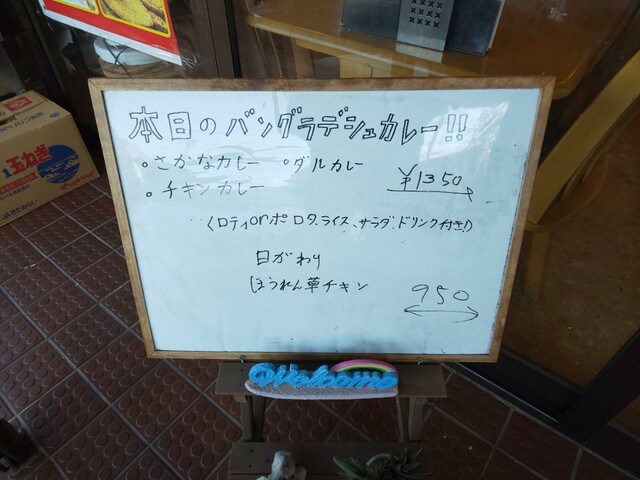 本日のバングラデシュカレー!!
・さかなカレー ・ダルカレー
・チキンカレー ¥1350
〈ロティorポロタ、ライス、サラダ、ドリンク付き!〉
日がわり
ほうれん草チキン 950
Welcome
玉ねぎ